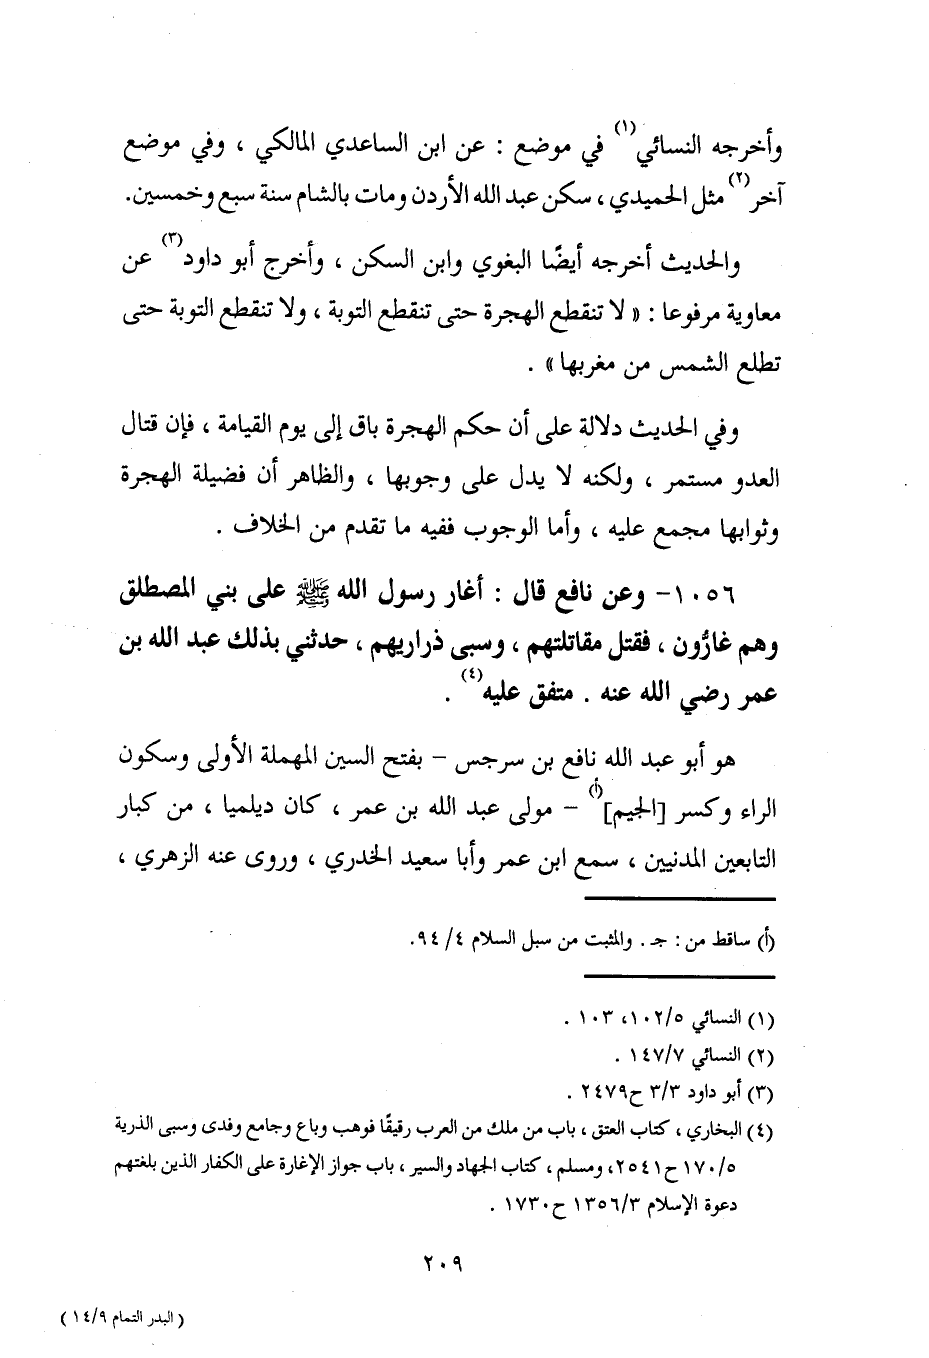 وأخرجه النسائي(١) في موضع : عن ابن الساعدي المالكي ، وفي موضع
آخر(٢) مثل الحميدي ، سكن عبد الله الأردن ومات بالشام سنة سبع وخمسين.
والحديث أخرجه أيضًا البغوي وابن السكن ، وأخرج أبو داود(٣) عن
معاوية مرفوعا : « لا تنقطع الهجرة حتى تنقطع التوبة ، ولا تنقطع التوبة حتى
تطلع الشمس من مغربها» .
وفي الحديث دلالة على أن حكم الهجرة باق إلى يوم القيامة ، فإن قتال
العدو مستمر ، ولكنه لا يدل على وجوبها ، والظاهر أن فضيلة الهجرة
وثوابها مجمع عليه ، وأما الوجوب ففيه ما تقدم من الخلاف .
١٠٥٦- وعن نافع قال : أغار رسول الله ﷺ على بني المصطلق
وهم غارُّون ، فقتل مقاتلتهم ، وسبى ذراريهم ، حدثني بذلك عبد الله بن
عمر رضي الله عنه . متفق عليه(٤) .
هو أبو عبد الله نافع بن سرجس – بفتح السين المهملة الأولى وسكون
الراء وكسر [الجيم](أ) – مولى عبد الله بن عمر ، كان ديلميا ، من كبار
التابعين المدنيين ، سمع ابن عمر وأبا سعيد الخدري ، وروى عنه الزهري ،
(أ) ساقط من : جـ . والمثبت من سبل السلام ٤/ ٩٤.
(١) النسائي ١٠٢/٥، ١٠٣ .
(٢) النسائي ١٤٧/٧ .
(٣) أبو داود ٣/٣ ح٢٤٧٩ .
(٤) البخاري ، كتاب العتق ، باب من ملك من العرب رقيقًا فوهب وباع وجامع وفدى وسبى الذرية
١٧٠/٥ ح٢٥٤١، ومسلم ، كتاب الجهاد والسير ، باب جواز الإغارة على الكفار الذين بلغتهم
دعوة الإسلام ١٣٥٦/٣ ح١٧٣٠ .
٢٠٩
( البدر التمام ١٤/٩ )